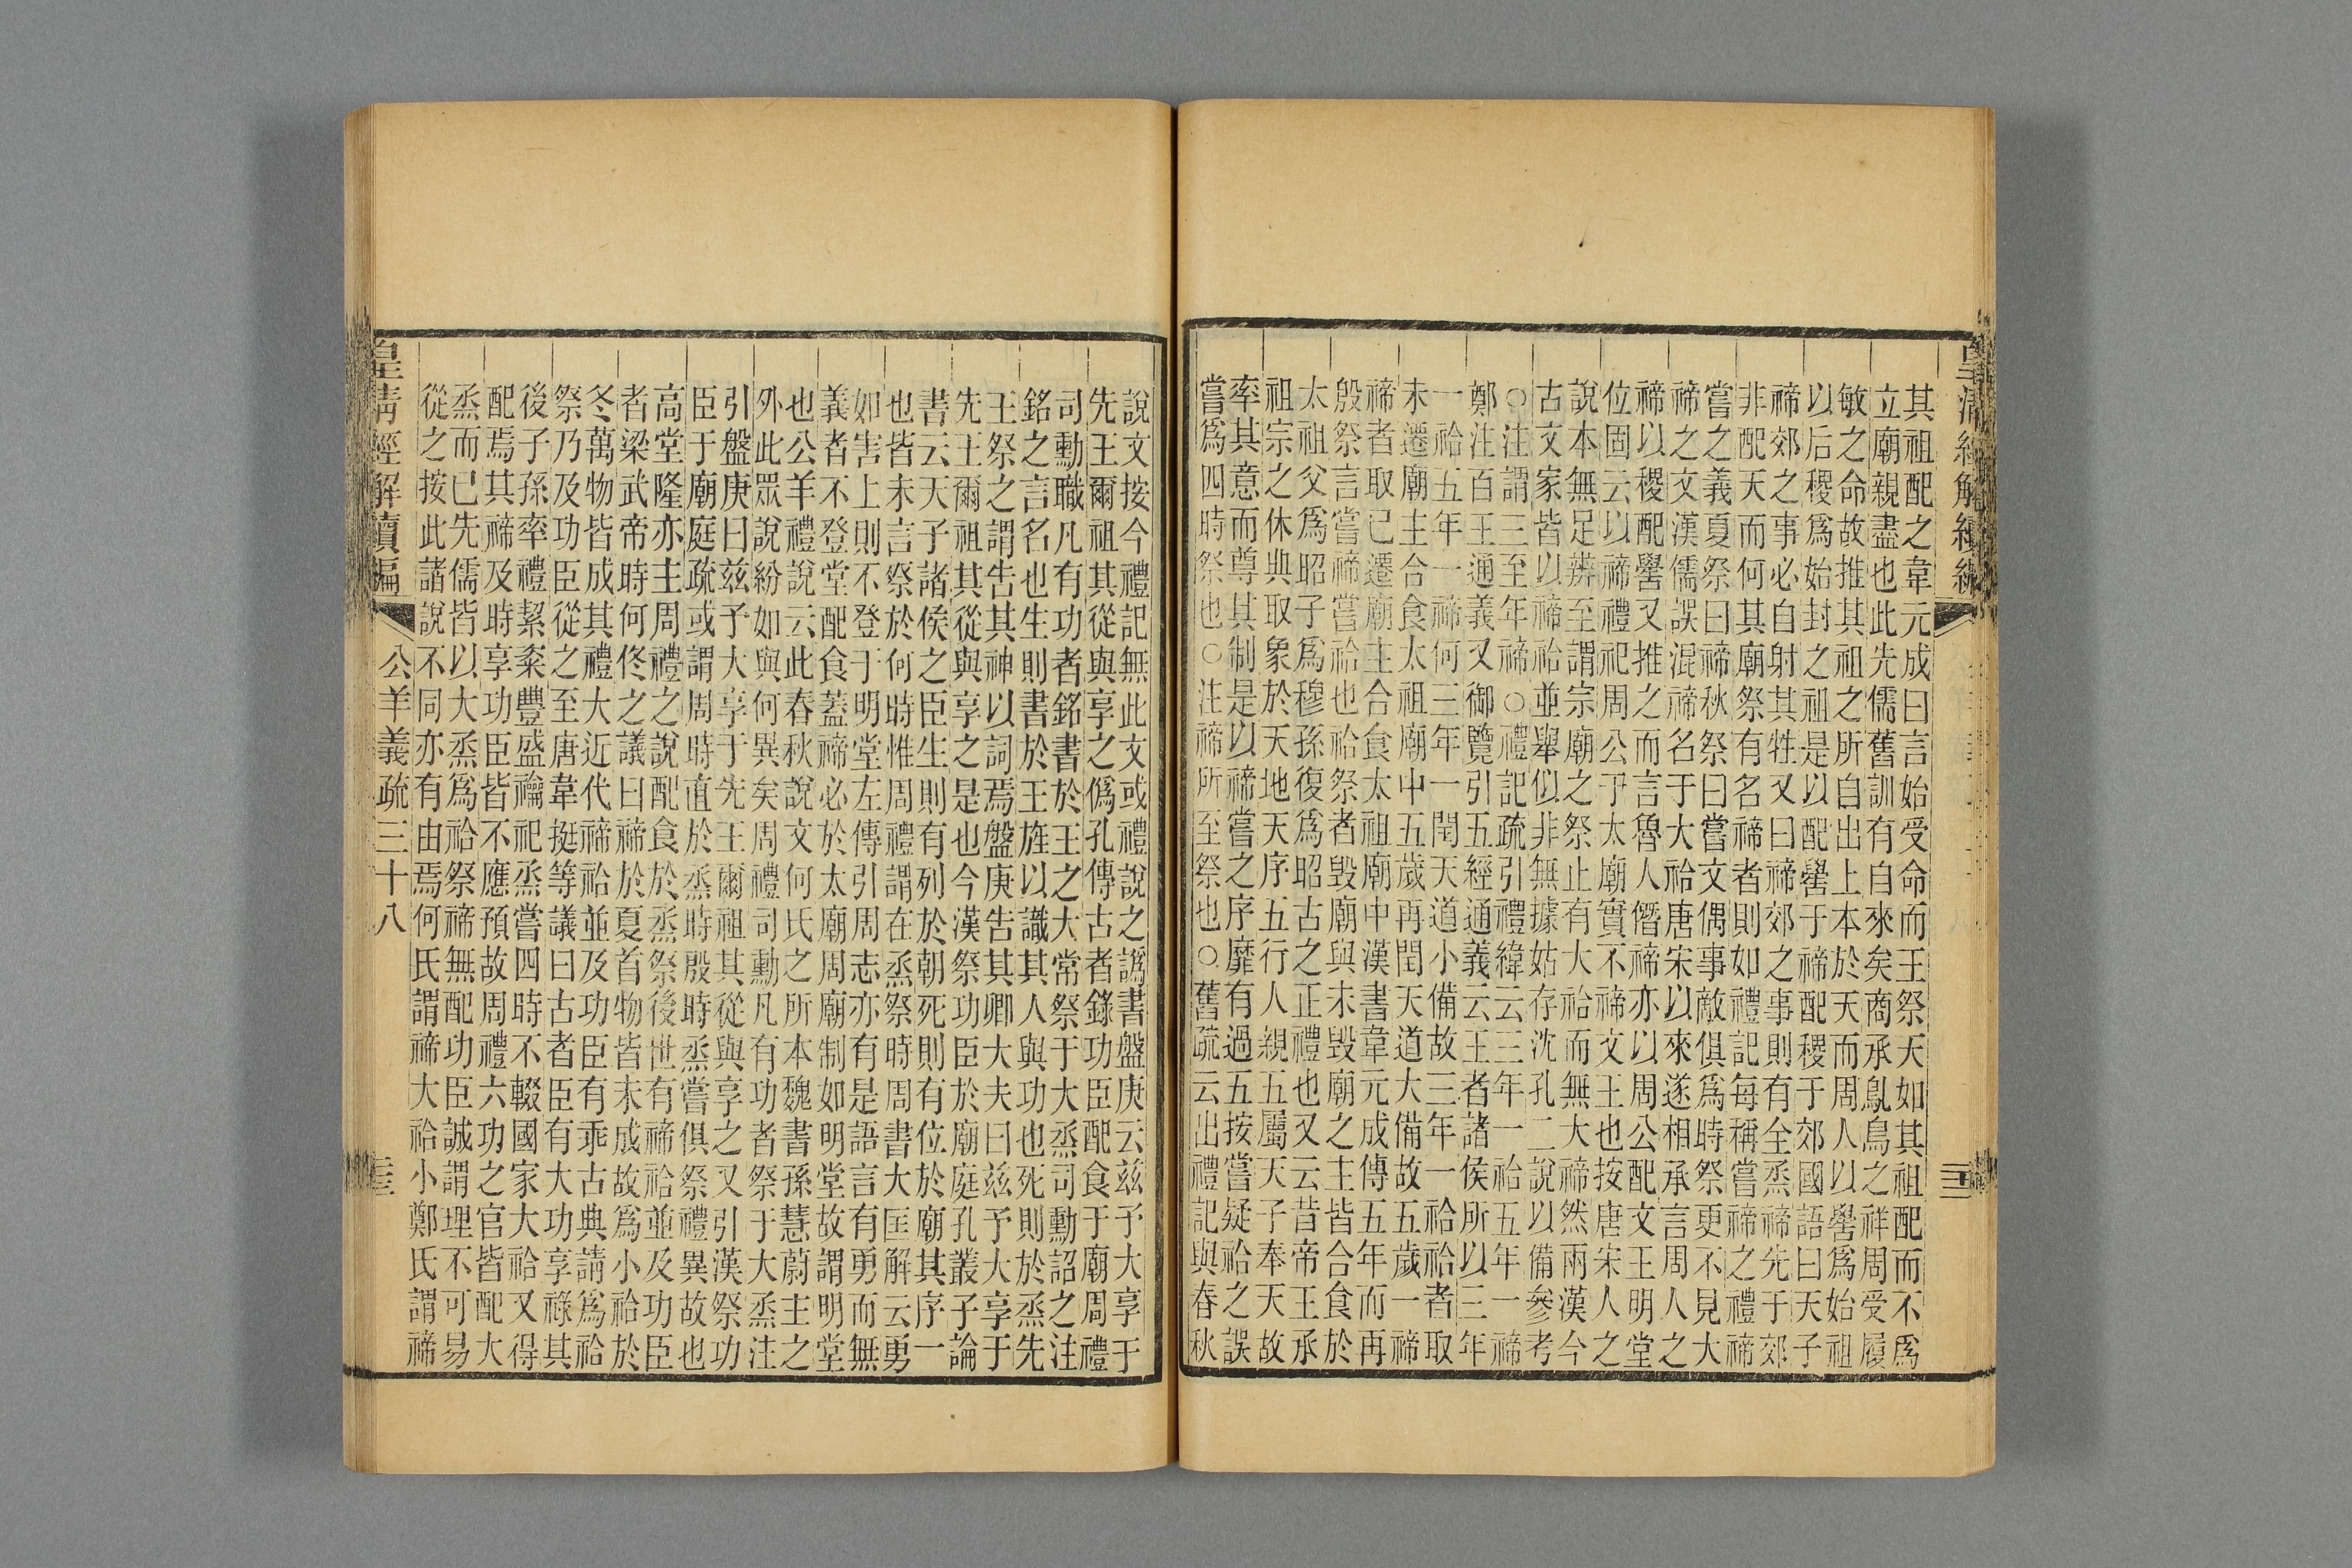 其祖配之韋元成曰言始受命而王祭天如其祖配而不爲
立廟親盡也此先儒舊訓有自來矣商承鳦鳥之祥周受履
敏之命故推其祖之所自出上本於天而周人以嚳爲始祖
以后稷爲始封之祖是以配嚳于禘配稷于郊國語曰天子
禘郊之事必自射其牲又曰禘郊之事則有全烝禘先于郊
非配天而何其廟祭有名禘者則如禮記每稱嘗禘之禮禘
嘗之義夏祭曰禘秋祭曰嘗文偶事敵俱爲時祭更不見大
禘之文漢儒誤混禘名于大祫唐宋以來遂相承言周人之
禘以稷配嚳又推之而言魯人僭禘亦以周公配文王明堂
位固云以禘禮祀周公于太廟實不禘文王也按唐宋人之
說本無足辨至謂宗廟之祭止有大祫而無大禘然兩漢今
古文家皆以禘祫並舉似非無據姑存沈孔二說以備參考
○注謂三至年禘○禮記疏引禮緯云三年一祫五年一禘
鄭注百王通義又御覽引五經通義云王者諸侯所以三年
一祫五年一禘何三年一閏天道小備故三年一祫祫者取
未遷廟主合食太祖廟中五歲再閏天道大備故五歲一禘
禘者取已遷廟主合食太祖廟中漢書韋元成傳五年而再
殷祭言嘗禘嘗祫也祫祭者毀廟與未毀廟之主皆合食於
太祖父爲昭子爲穆孫復爲昭古之正禮也又云昔帝王承
祖宗之休典取象於天地天序五行人親五屬天子奉天故
率其意而尊其制是以禘嘗之序靡有過五按嘗疑祫之誤
嘗爲四時祭也○注禘所至祭也○舊疏云出禮記與春秋
說文按今禮記無此文或禮說之譌書盤庚云茲予大享于
先王爾祖其從與享之僞孔傳古者錄功臣配食于廟周禮
司勳職凡有功者銘書於王之大常祭于大烝司勳詔之注
銘之言名也生則書於王旌以識其人與功也死則於烝先
王祭之謂告其神以詞焉盤庚告其卿大夫曰茲予大享于
先王爾祖其從與享之是也今漢祭功臣於廟庭孔叢子論
書云天子諸侯之臣生則有列於朝死則有位於廟其序一
也皆未言祭於何時惟周禮謂在烝祭時周書大匡解云勇
如害上則不登于明堂左傳引周志亦有是語言有勇而無
義者不登堂配食蓋禘必於太廟周廟制如明堂故謂明堂
也公羊禮說云此春秋說文何氏之所本魏書孫慧蔚主之
外此眾說紛如與何異矣周禮司勳凡有功者祭于大烝注
引盤庚曰茲予大享于先王爾祖其從與享之又引漢祭功
臣于廟庭疏或謂周時直於烝時殷時烝嘗俱祭禮異故也
高堂隆亦主周禮之說配食於烝祭後世有禘祫並及功臣
者梁武帝時何佟之議曰禘於夏首物皆未成故爲小祫於
冬萬物皆成其禮大近代禘祫並及功臣有乖古典請爲祫
祭乃及功臣從之至唐韋挺等議曰古者臣有大功享祿其
後子孫率禮絜粢豐盛禴祀烝嘗四時不輟國家大祫又得
配焉其禘及時享功臣皆不應預故周禮六功之官皆配大
烝而已先儒皆以大烝爲祫祭禘無配功臣誠謂理不可易
從之按此諸說不同亦有由焉何氏謂禘大祫小鄭氏謂禘
皇清經解續編 公羊義疏三十八